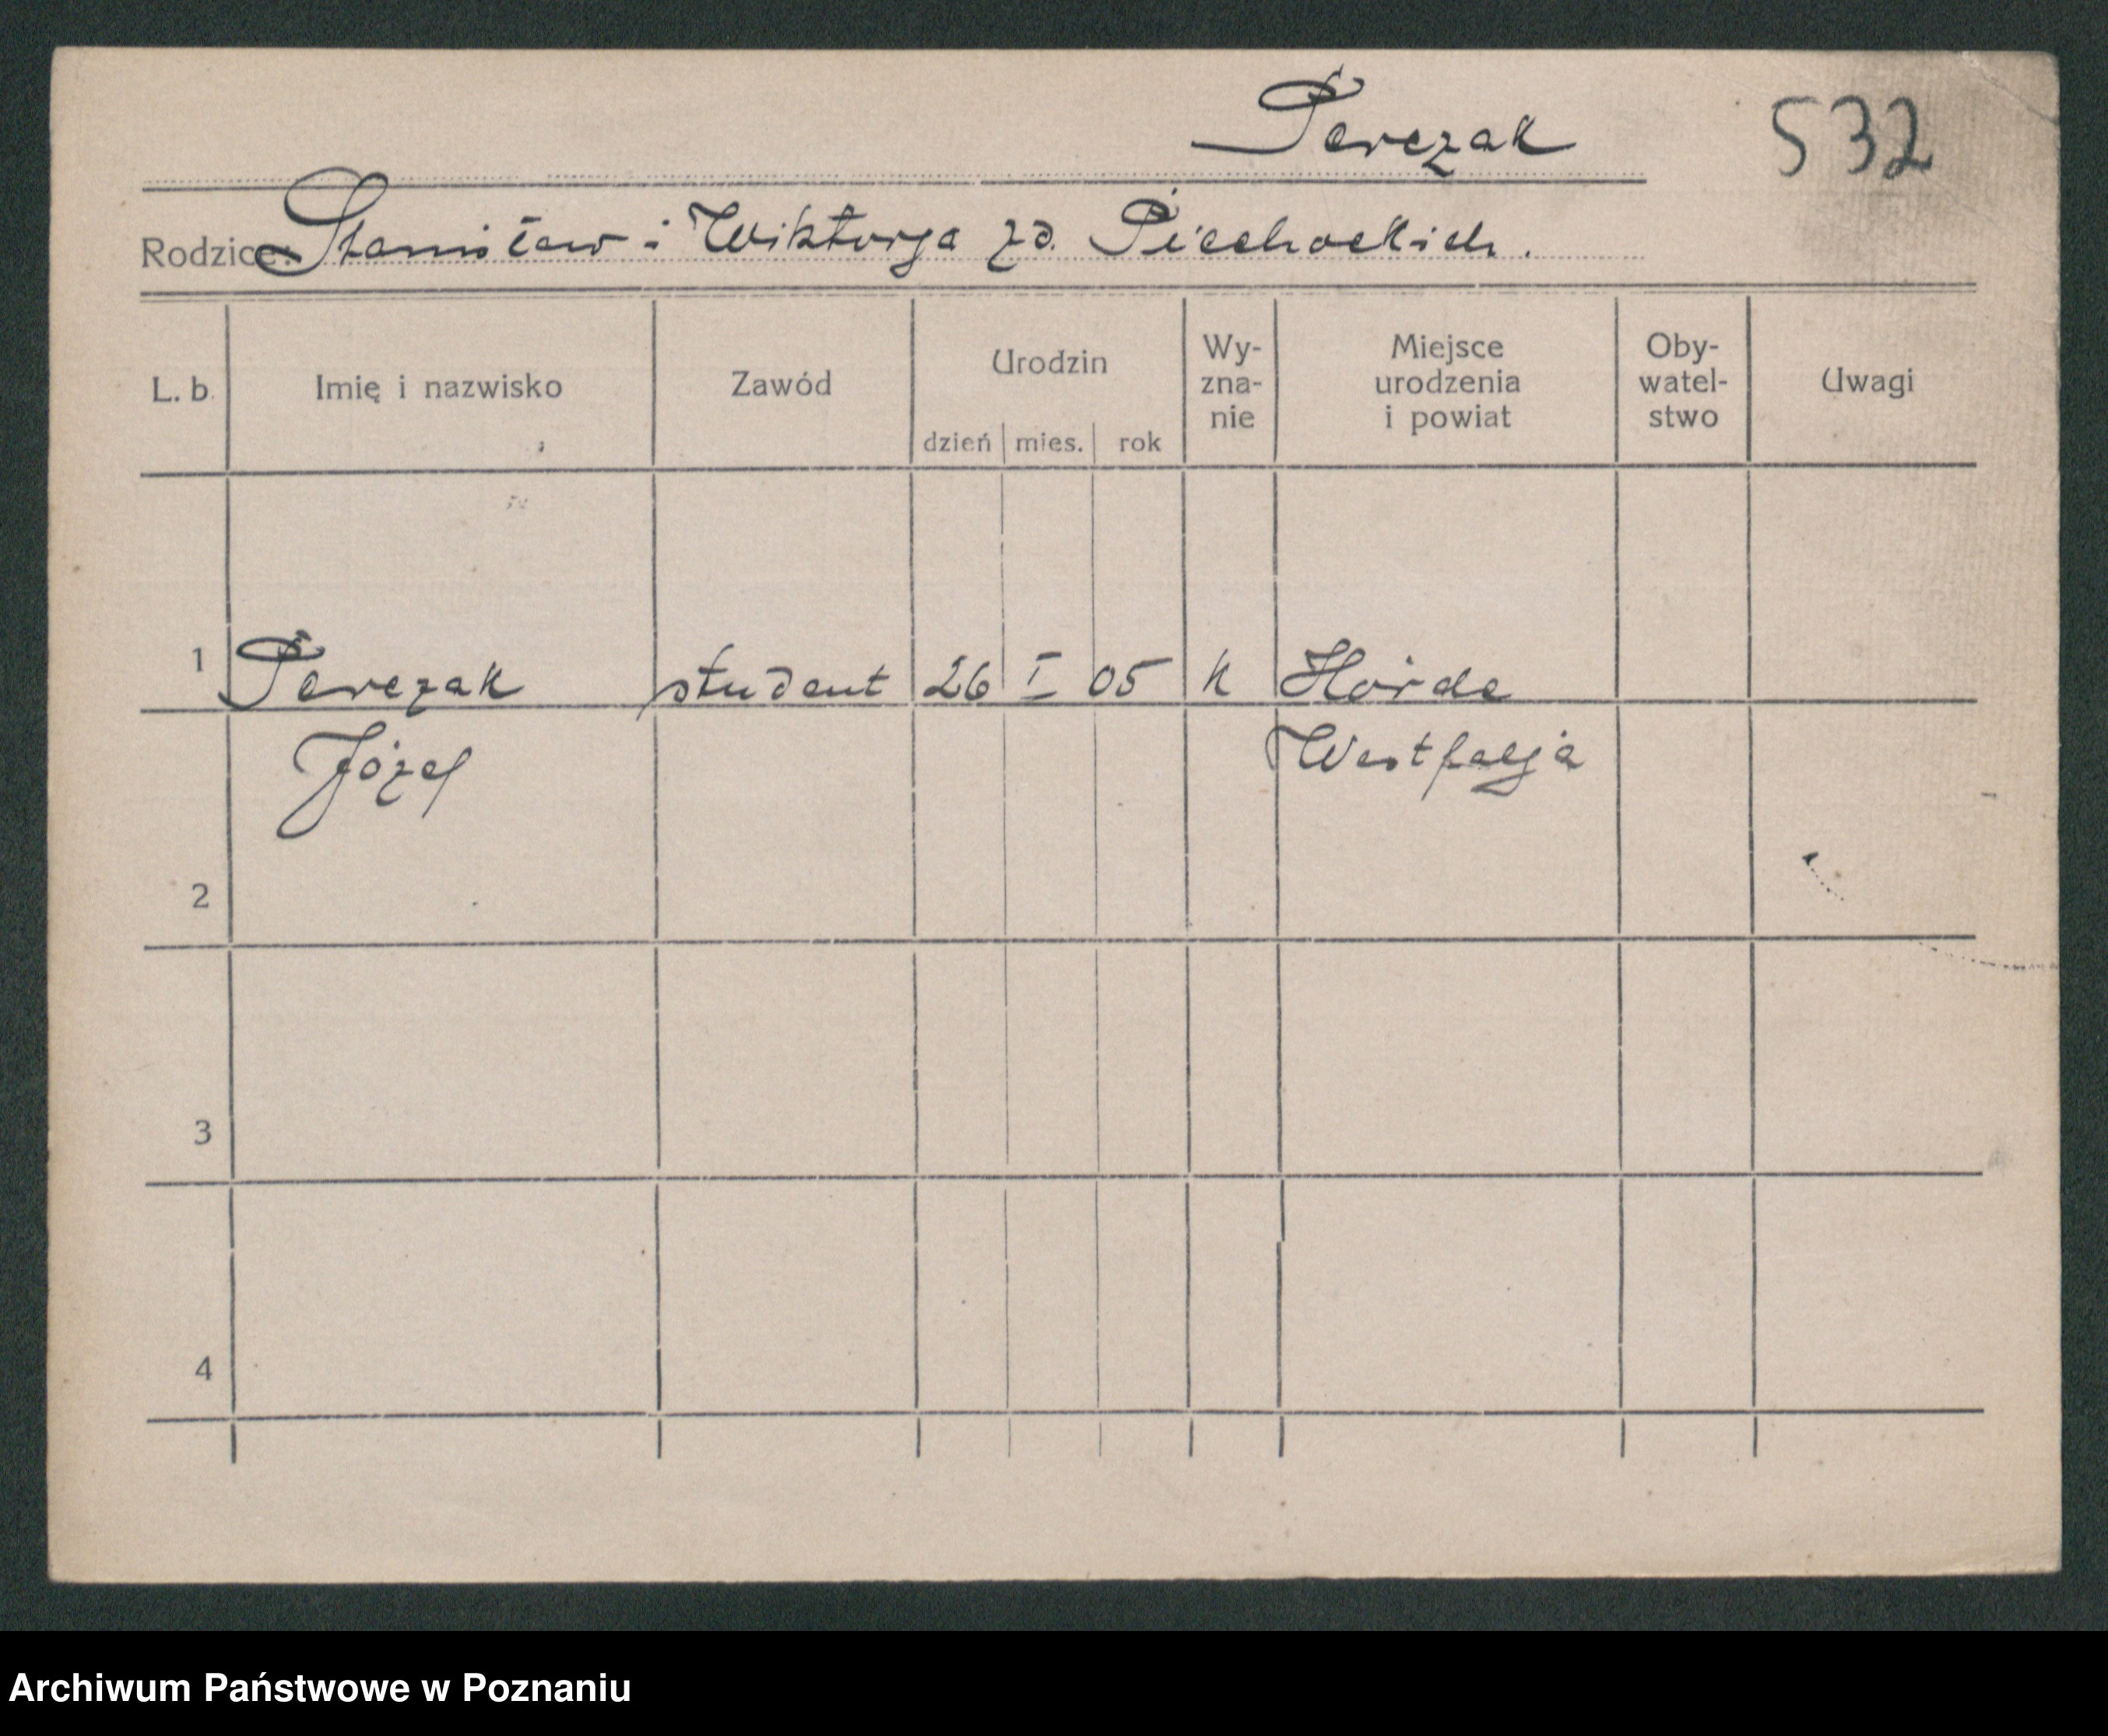 Perczak 532
Rodzice: Stanisław i Wiktorja zd. Piechockich.
L. b. Imię i nazwisko Zawód Urodzin dzień mies. rok Wy-zna-nie Miejsce urodzenia i powiat Oby-watel-stwo Uwagi
1 Perczak student 26 I 05 k Hörde
Józef Westfalja
2
3
4
Archiwum Państwowe w Poznaniu